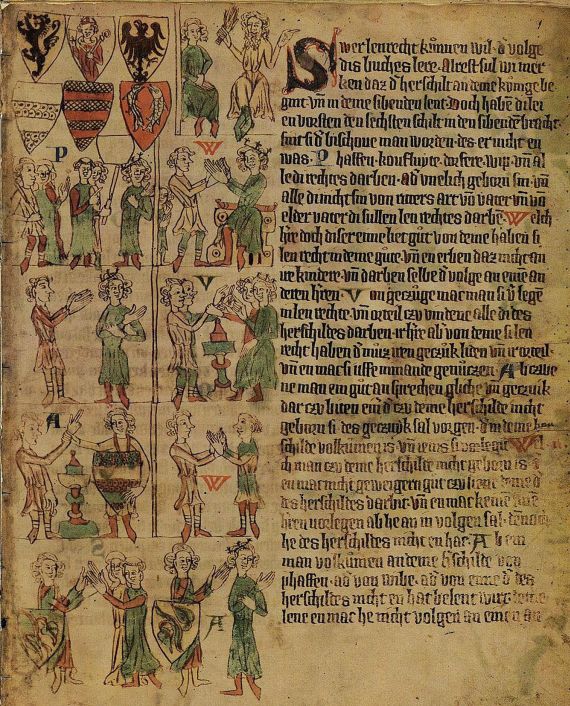 Swer lenrecht kunnen wil · d volge
dis buches lere · Alrest sul wi mer
ken daz d herschilt an deme kunige be
gint vn in deme sibenden lent · Doch haben di lei
en vorsten den sechsten schilt in den sibenden bracht ·
sint si d bischove man worden · des er nicht en
was · Phaffen · kouflute · dorfere · wip · vn al
le di rechtes darben · ad vnelich geborn sin · vn
alle di nicht sin von ritters art von vater vn vo
elder vater di sullen len rechtes darbe · Welch
h're doch diser enne let gut von deme haben si
len recht in deme gute · vn en erben daz nicht an
ire kindere · vn darben selbe d volge an eine an
deren h'ren · Von geczuge mac man si v'legen
in len rechte · vn orteil czu vinden alle di des
herschildes darben ·
recht haben d muz iren geczuk liden vn ir orteil ·
vn en mac si uffe nimande genuczen · Ab czwe
ne man ein gut an sprechen gliche vn geczuik
dar czu biten ein d czu deme herschilde nicht
geborn si · des geczuik sal vorgen · d in deme her
schilde volkumen is · vn iens si vorlegit Wil
ich man czu deme herschilde nicht geborn is ·
en mac nicht geweigern gut czu liene deme d
des herschildes darbit · vn en mac keine
h'ren vorlegen ab he an im volgen sal ·
he des herschildes nicht en hat · Ab ein
man volkumen an deme h'schilde von
phaffen · ad von wibe · ad von enne d des
herschildes nicht en hat belent wirt
lene en mac he nicht volgen an einen an
P
W
V
A
W
A